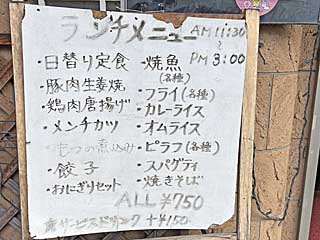 ランチメニュー AM11:30
~
PM 3:00
・日替り定食
・豚肉生姜焼
・鶏肉唐揚げ
・メンチカツ
・もつの煮込み
・餃子
・おにぎりセット
・焼魚(各種)
・フライ(各種)
・カレーライス
・オムライス
・ピラフ(各種)
・スパゲティ
・焼きそば
ALL ¥750
サービスドリンク +¥150